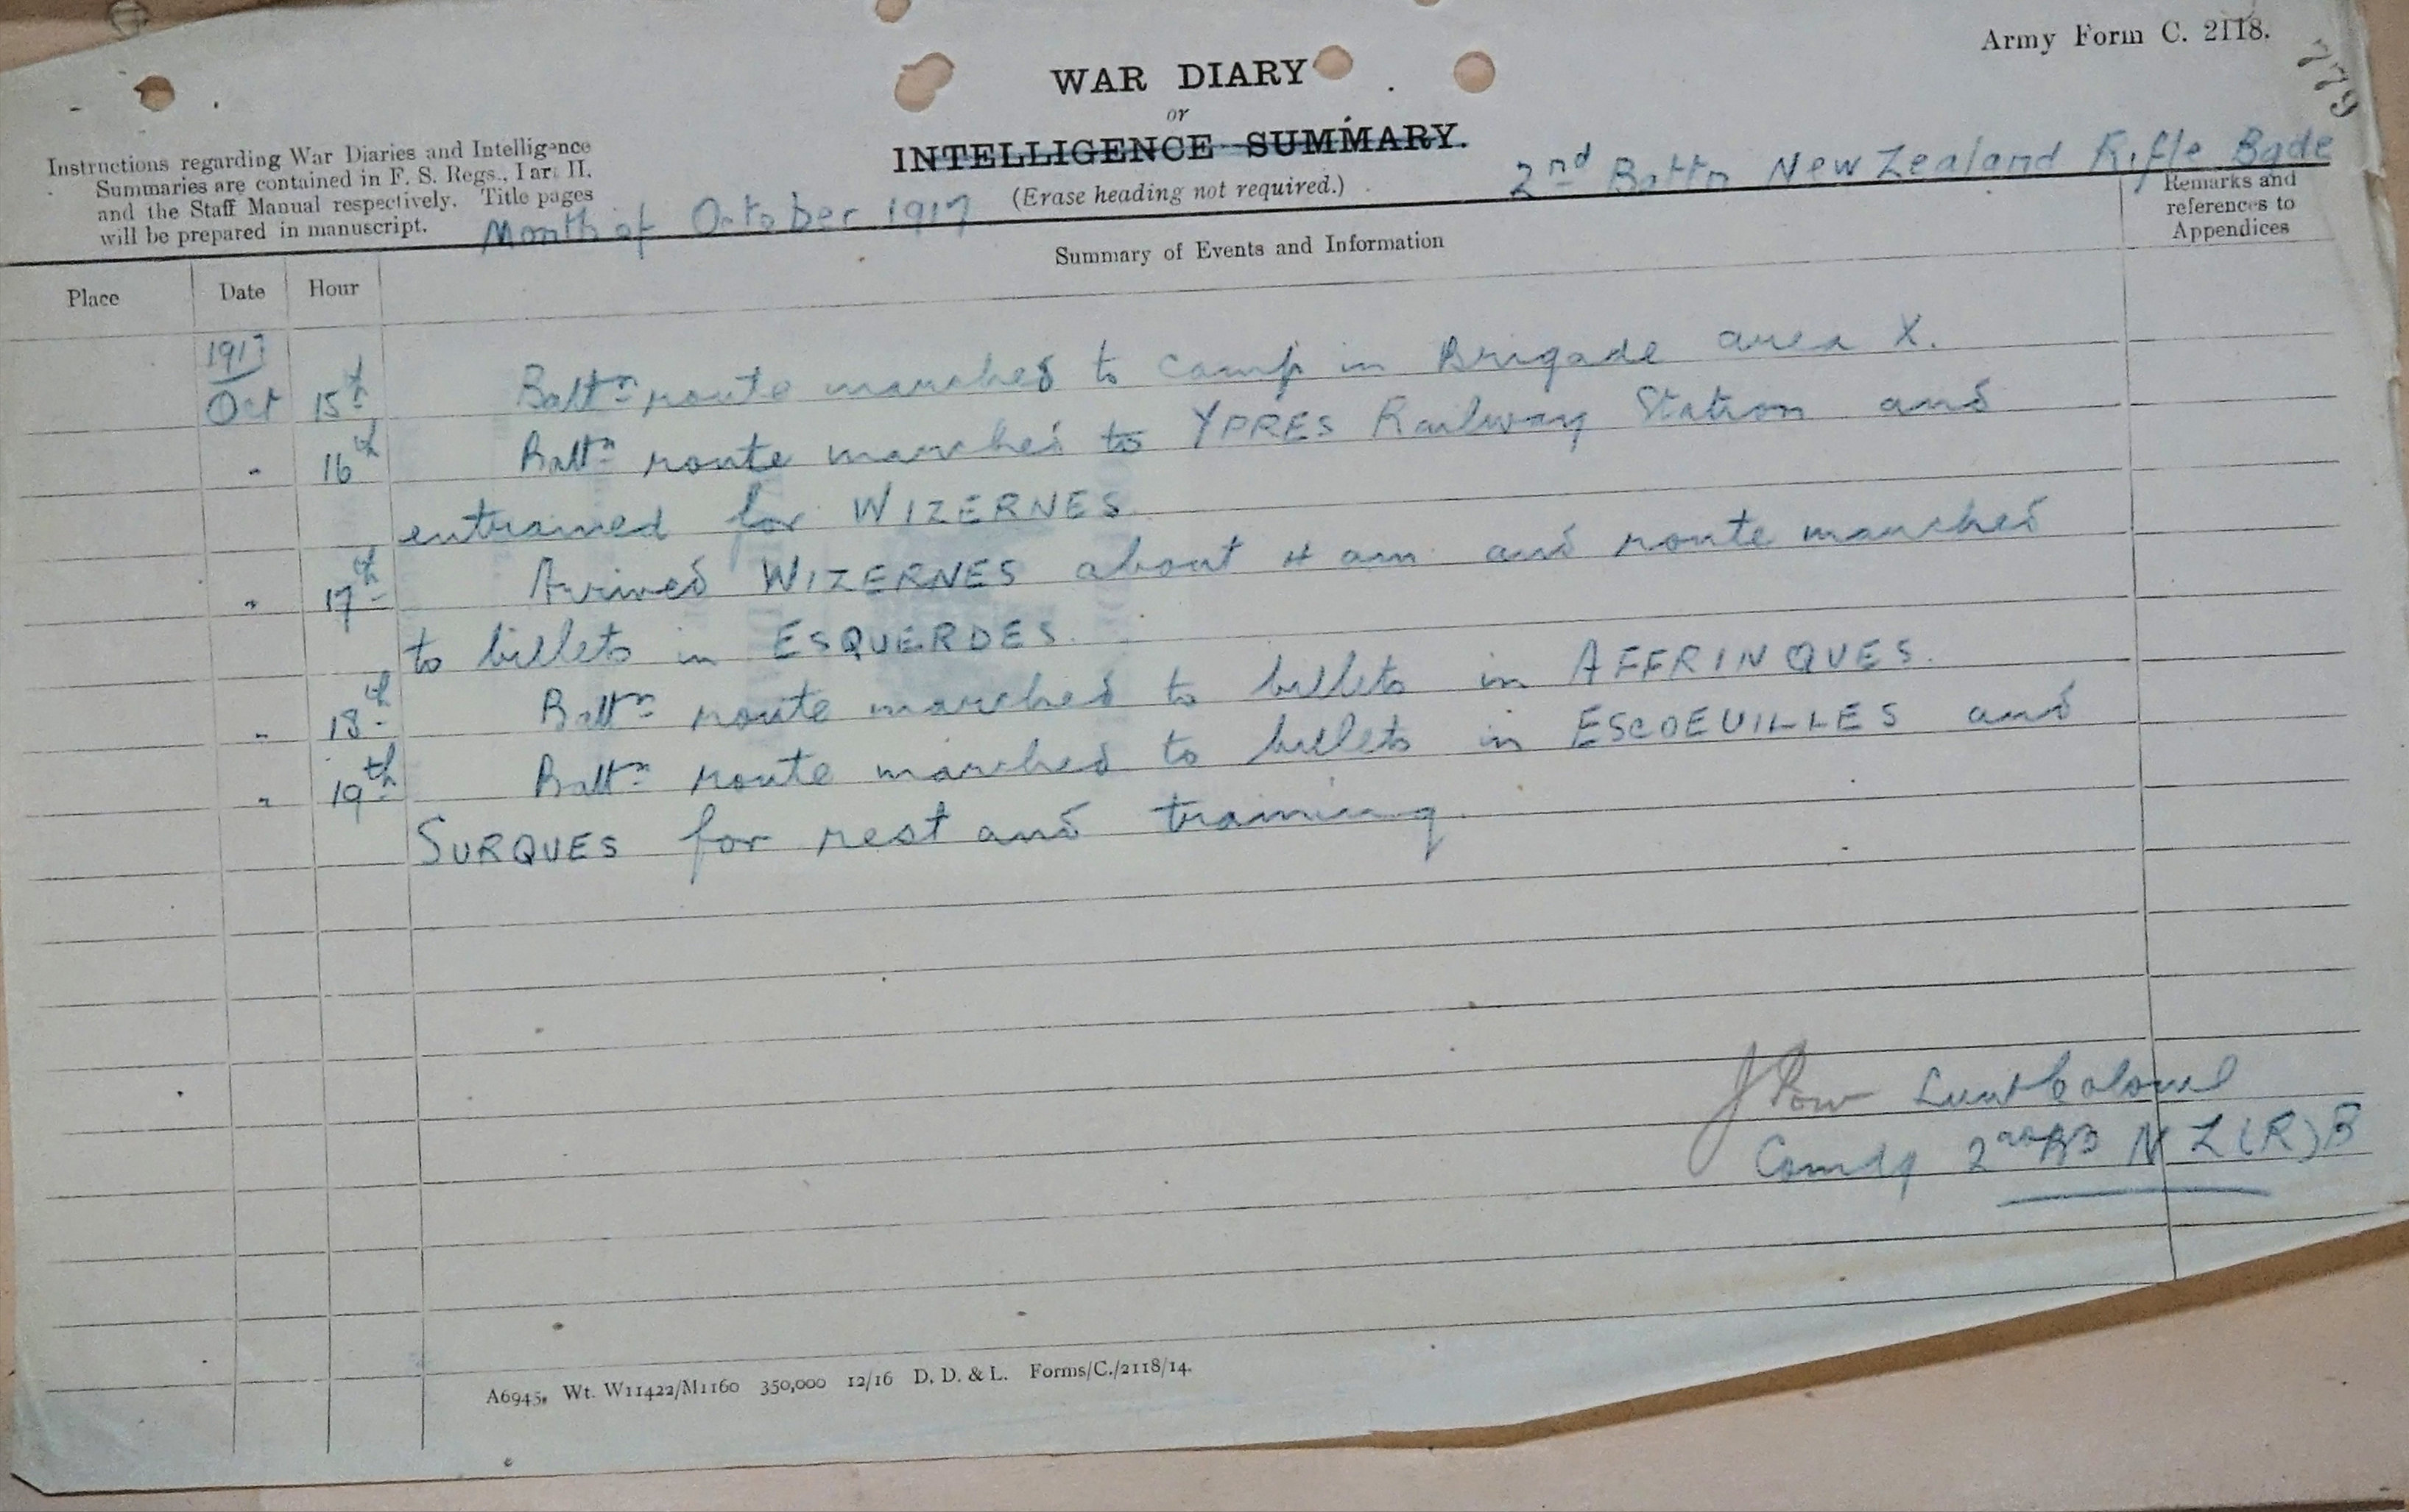 Army Form C. 2118.
779
WAR DIARY
or
INTELLIGENCE SUMMARY.
(Erase heading not required.)
Instructions regarding War Diaries and Intelligence
Summaries are contained in F. S. Regs., Part II.
and the Staff Manual respectively. Title pages
will be prepared in manuscript.
Month of October 1917
2nd Battn New Zealand Rifle Bgde
Place Date Hour Summary of Events and Information Remarks and references to Appendices
1917
Oct 15th Battn route marched to camp in Brigade area X.
" 16th Battn route marched to YPRES Railway Station and
entrained for WIZERNES.
" 17th Arrived WIZERNES about 4 am and route marched
to billets in ESQUERDES.
" 18th Battn route marched to billets in AFFRINQUES.
" 19th Battn route marched to billets in ESCOEUILLES and
SURQUES for rest and training.
J Pow Lieut Colonel
Comdg 2nd Bn N Z (R) B
A6945. Wt. W11422/M1160 350,000 12/16 D. D. & L. Forms/C./2118/14.